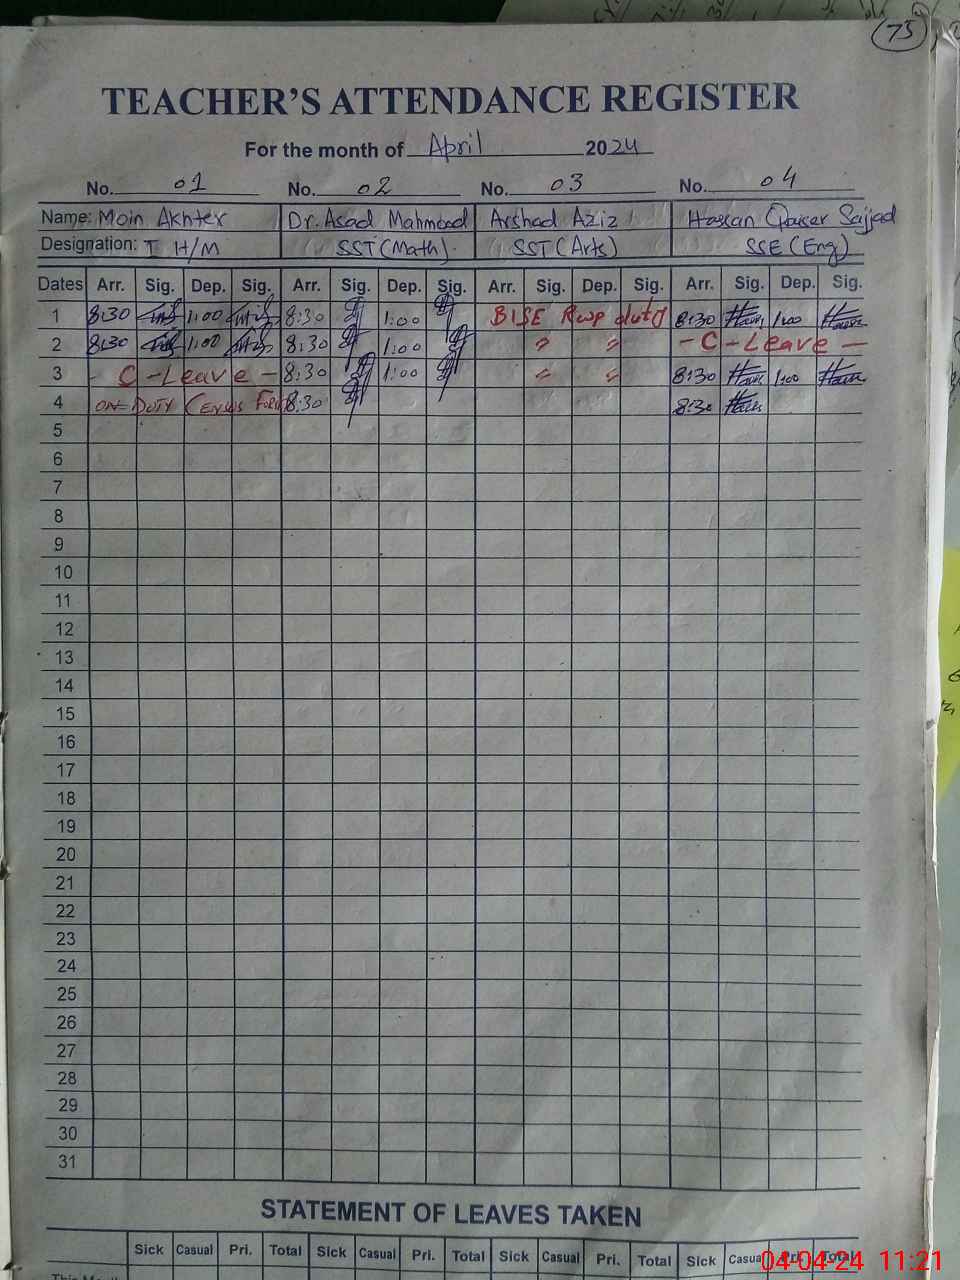 75
TEACHER'S ATTENDANCE REGISTER
For the month of April 2024
No. 01 No. 02 No. 03 No. 04
Name: Moin Akhter Dr. Asad Mahmood Arshad Aziz Hassan Qaiser Sajjad
Designation: I H/M SST (Math). SST (Arts) SSE (Eng)
Dates Arr. Sig. Dep. Sig. Arr. Sig. Dep. Sig. Arr. Sig. Dep. Sig. Arr. Sig. Dep. Sig.
1 8:30 1:00 8:30 1:00 BISE Rwp duty 8:30 1:00
2 8:30 1:00 8:30 1:00 〃 〃 - C - Leave -
3 - C - Leave - 8:30 1:00 〃 〃 8:30 1:00
4 ON DUTY (Census 8:30 8:30
5
6
7
8
9
10
11
12
13
14
15
16
17
18
19
20
21
22
23
24
25
26
27
28
29
30
31
STATEMENT OF LEAVES TAKEN
Sick Casual Pri. Total Sick Casual Pri. Total Sick Casual Pri. Total Sick Casual Pri. Total
04-04-24 11:21